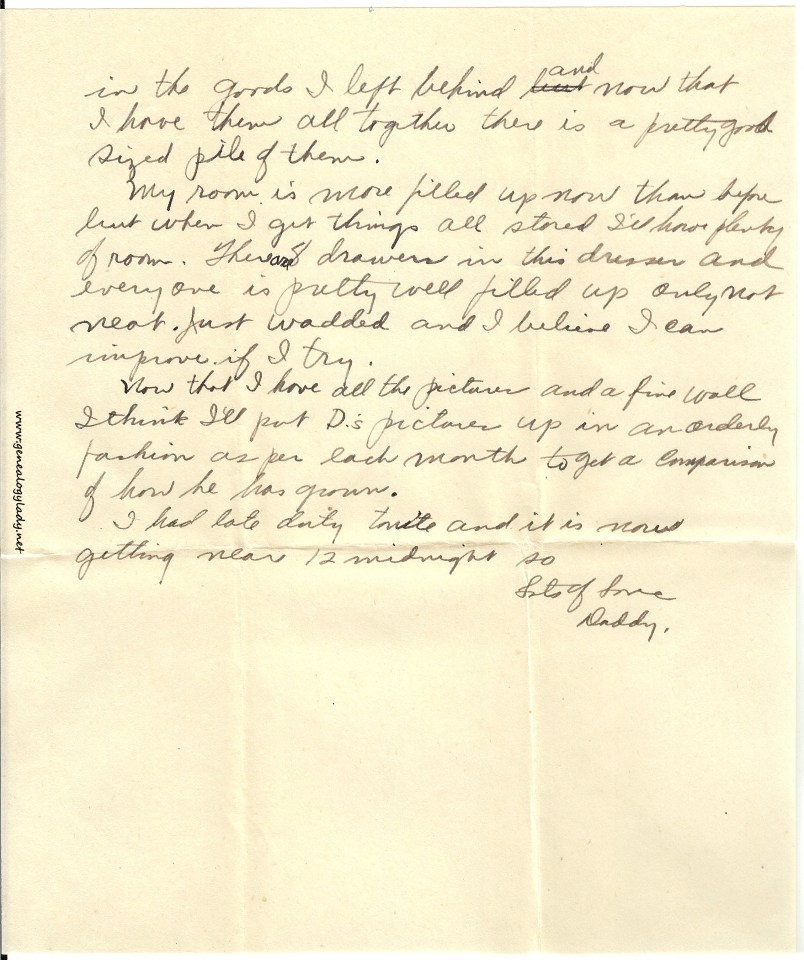 in the goods I left behind but and now that
I have them all together there is a pretty good
sized pile of them.
My room is more filled up now than before
but when I get things all stored I'll have plenty
of room. There are 8 drawers in this dresser and
every one is pretty well filled up only not
neat. Just wadded and I believe I can
improve if I try.
Now that I have all the pictures and a fine wall
I think I'll put D.'s pictures up in an orderly
fashion as per each month to get a comparison
of how he has grown.
I had late duty tonite and it is now
getting near 12 midnight so
Lots of Love
Daddy.
www.genealogylady.net